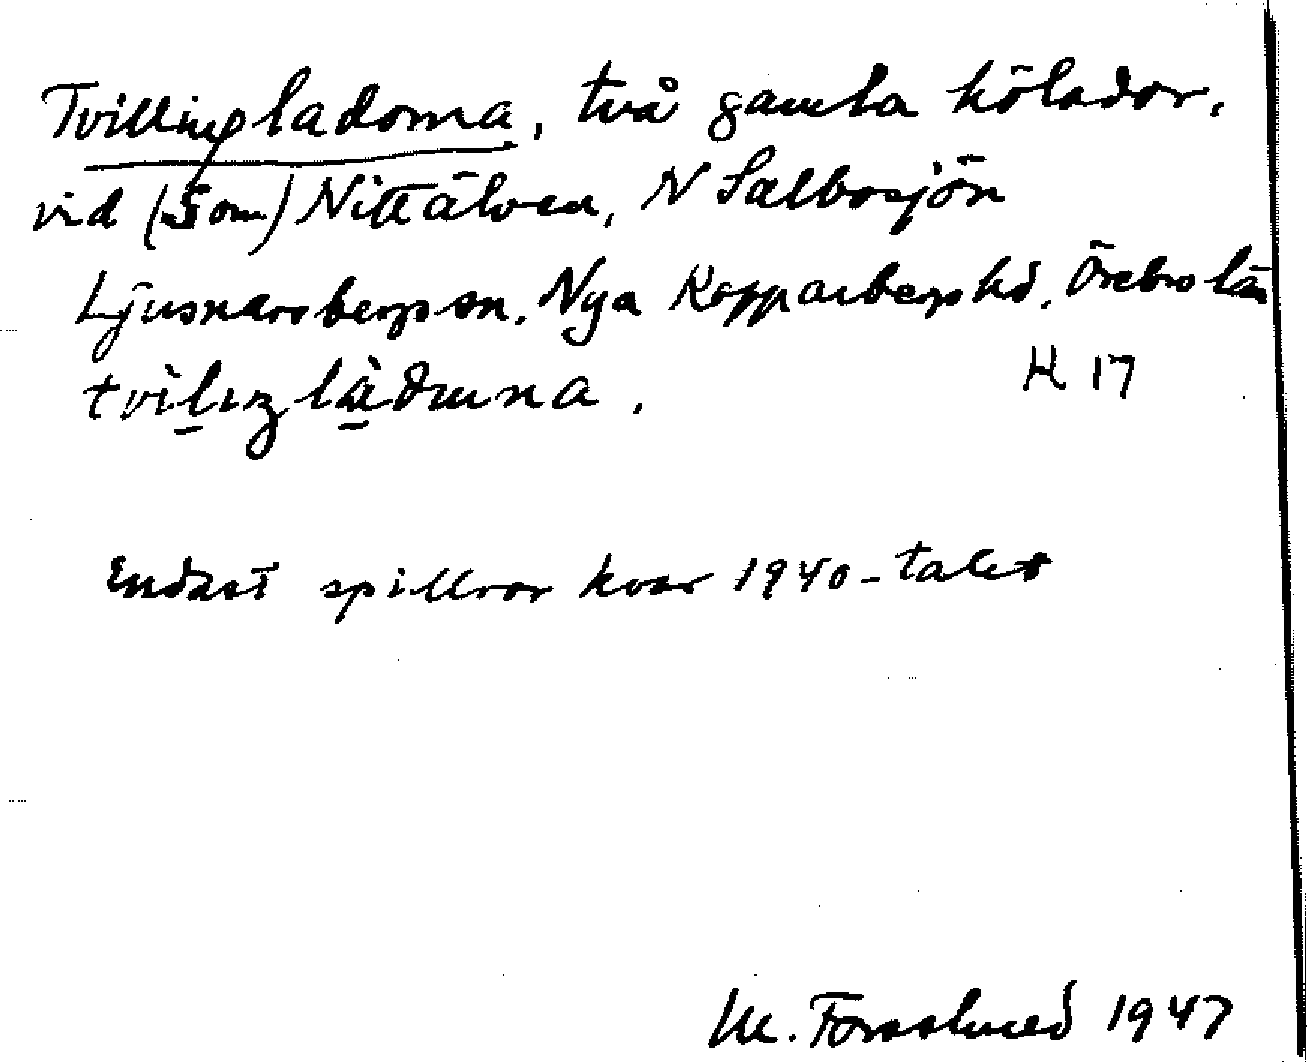 Tvillingladorna, två gamla hölador,
vid (S om) Nittälven, N Salbosjön
Ljusnarsbergs sn. Nya Kopparbergs hd, Örebro län
K 17
Endast spillror kvar 1940-talet
M. Forsslund 1947